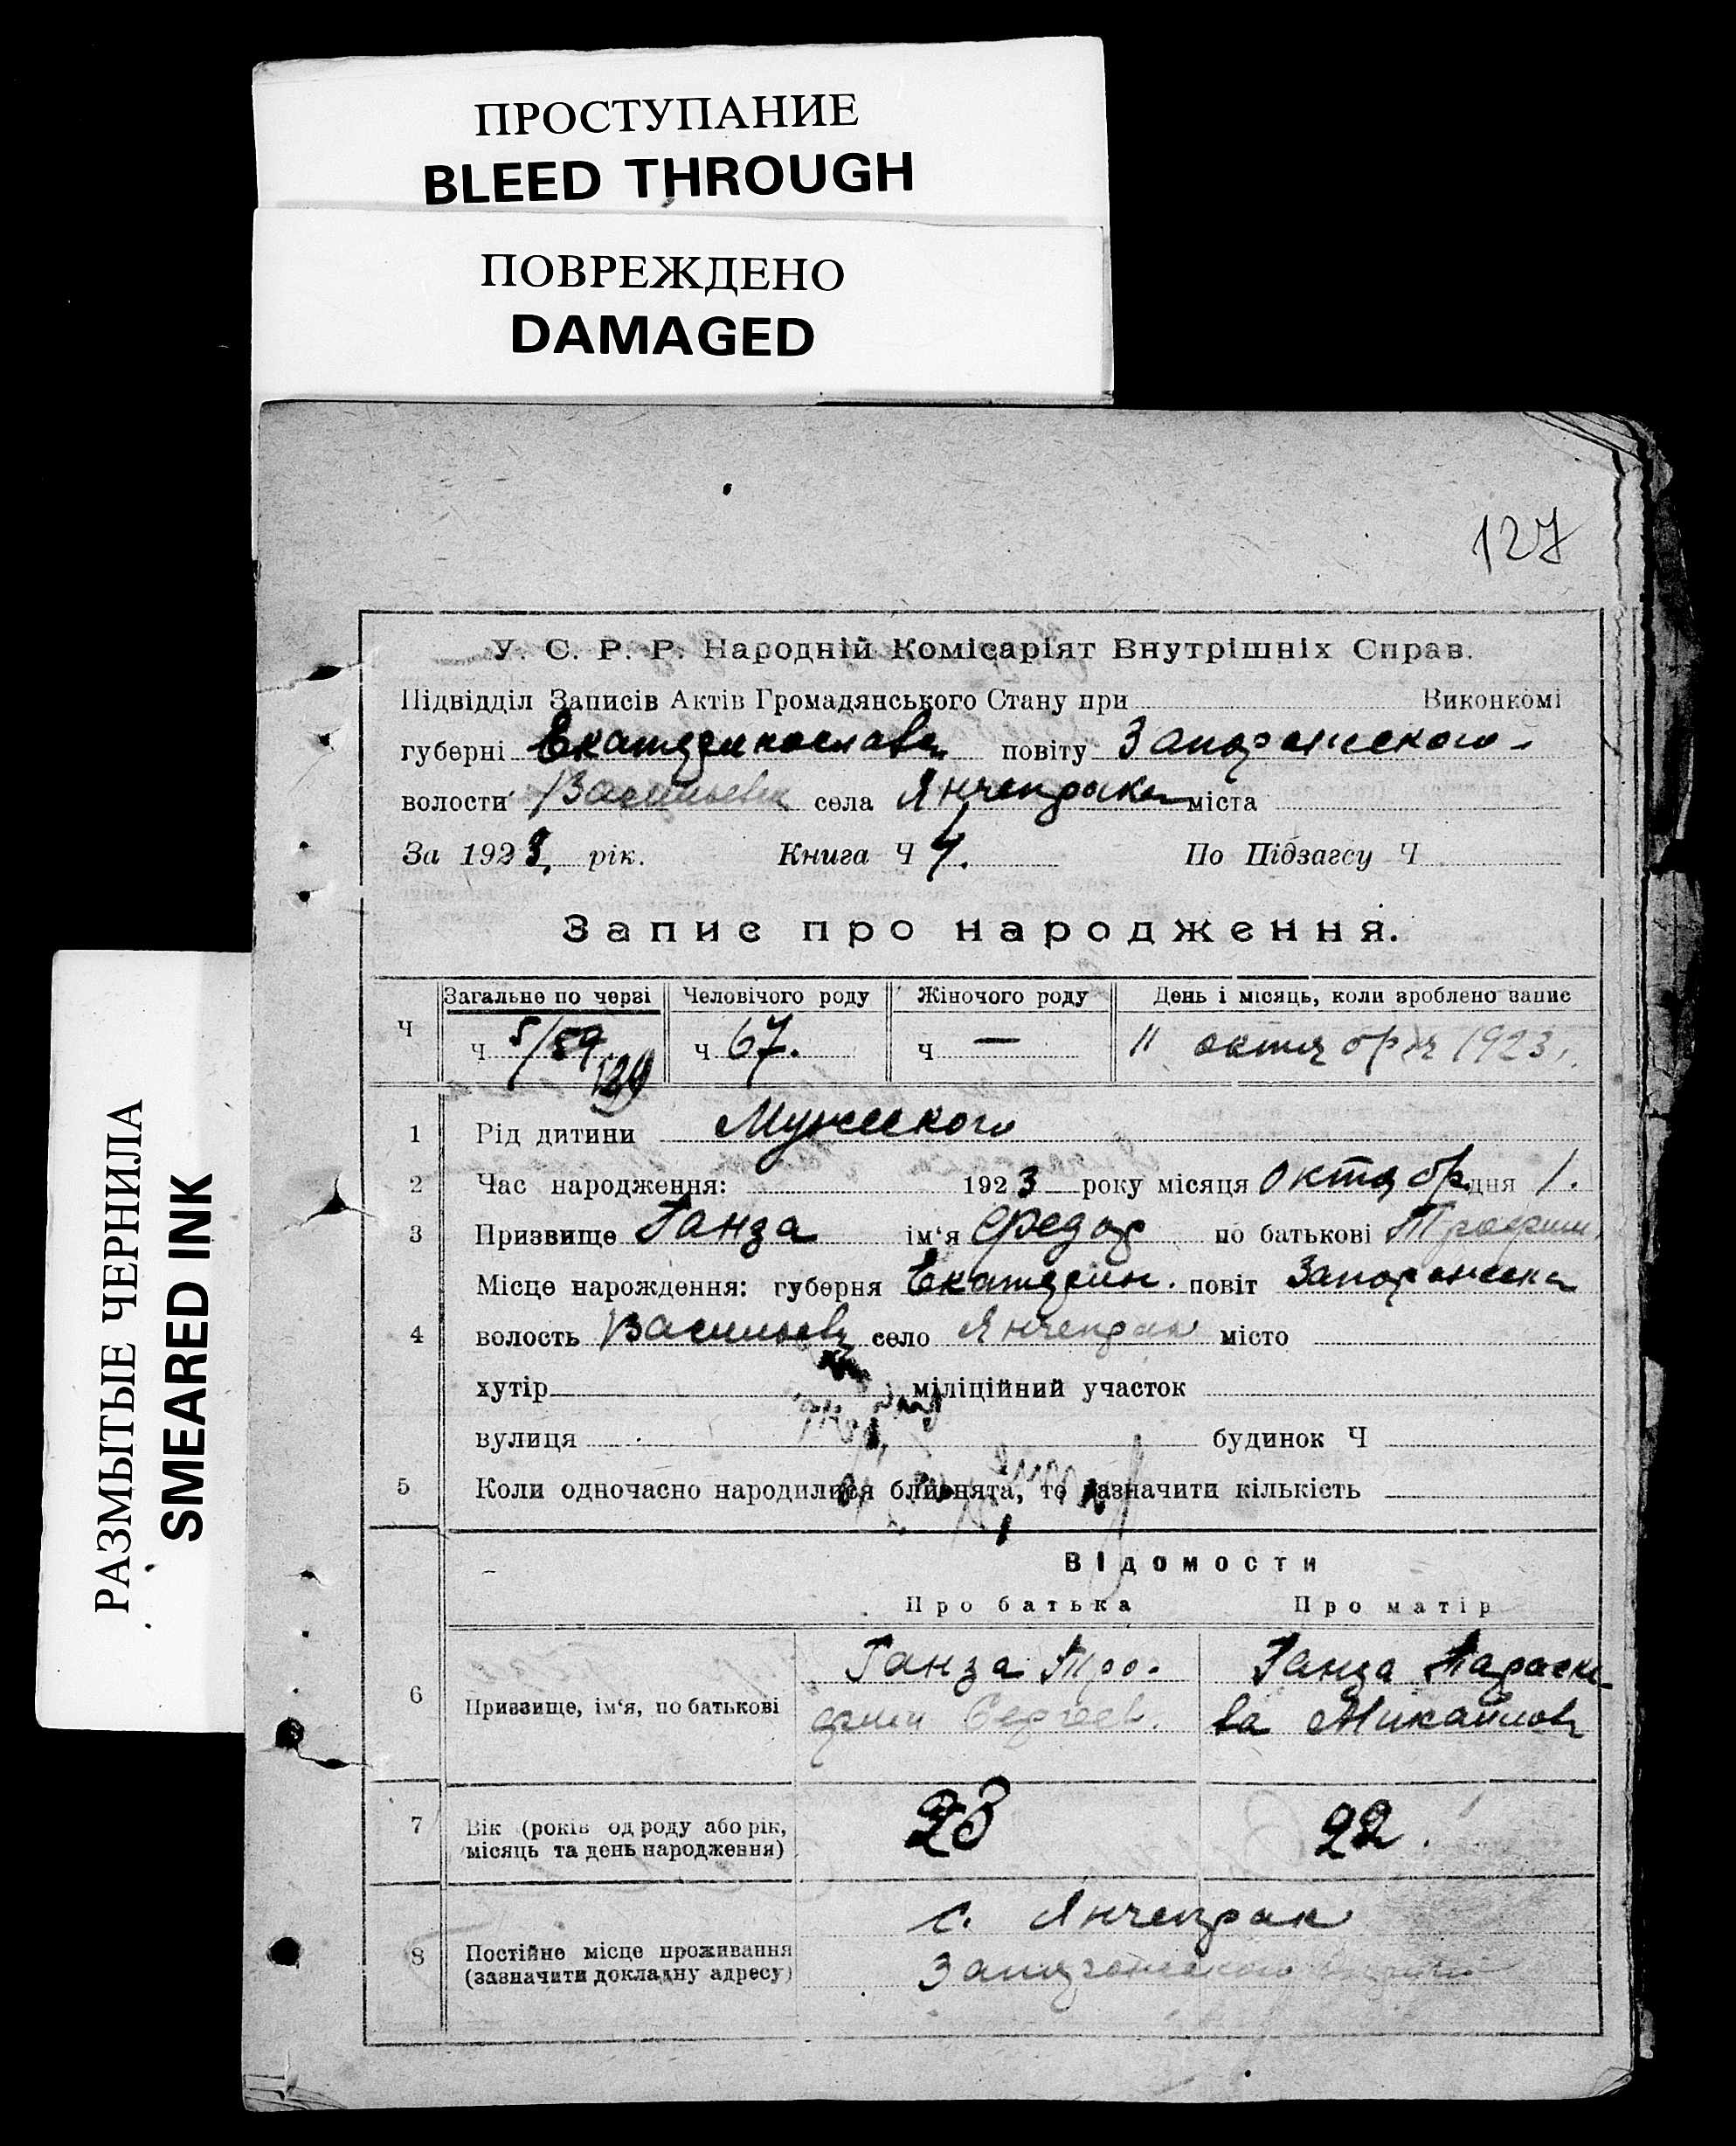 ПРОСТУПАНИЕ
BLEED THROUGH
ПОВРЕЖДЕНО
DAMAGED
РАЗМЫТЫЕ ЧЕРНИЛА
SMEARED INK
127
У. С. Р. Р. Народній Комісаріят Внутрішніх Справ.
Підвідділ Записів Актів Громадянського Стану при Виконкомі
губерні Екатеринославск повіту Запорожского
волости Васильевк села Янчекрака міста
За 1923 рік. Книга Ч 4. По Підзагсу Ч
Запис про народження.
Загальне по черзі Человічого роду Жіночого роду День і місяць, коли зроблено запис
Ч ч 5/59 129 ч 67. ч — 11 октября 1923.
1 Рід дитини Мужского
2 Час народження: 1923 року місяця октябр. дня 1.
3 Призвище Ганза ім‘я Федор по батькові Трофим.
Місце нарождення: губерня Екатерин. повіт Запорожск
4 волость Васильевк село Янчекрак місто
хутір міліційний участок
вулиця будинок Ч
5 Коли одночасно народилися близнята, то зазначити кількість
Відомости
Про батька Про матір
6 Призвище, ім‘я, по батькові Ганза Тро- Ганза Параске-
фим Сергеев. ва Михайлов
7 Вік (років од роду або рік, 23 22.
місяць та день народження)
с. Янчекрак
8 Постійне місце проживання
(зазначити докладну адресу) Запорожского